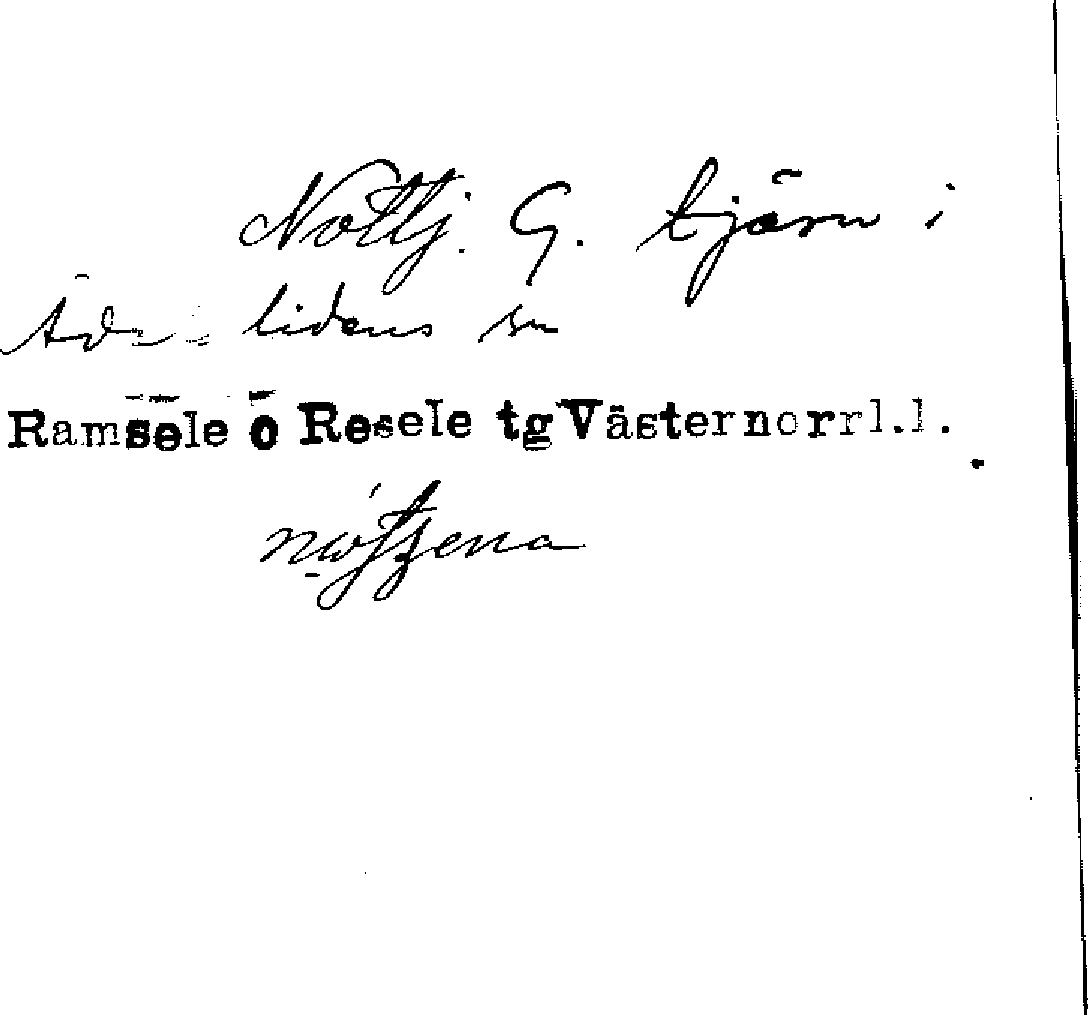 Nottj. G. tjärn i
Åd lidens sn
Ramsele o Resele tg Västernorrl.l.